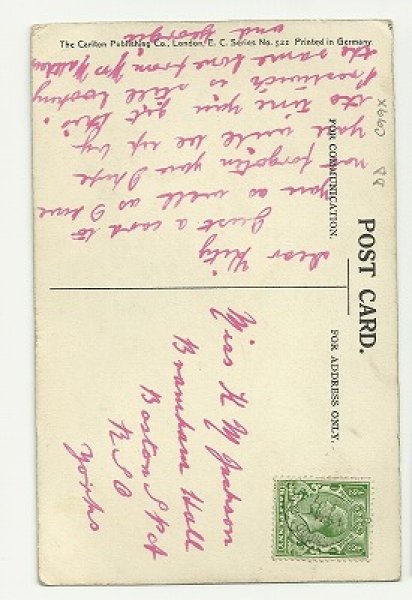 The Carlton Publishing Co., London, E. C. Series No. 521 Printed in Germany.
POST CARD.
FOR COMMUNICATION.
FOR ADDRESS ONLY.
Dear Kity
Just a card to
you as well as I have
not forgotten you I hope
you will be up by
the time you get this
is still looking
the same love from Mrs
and Georgie
Miss K M Jackson
Bramham Hall
Boston Spa
RSO
Yorks